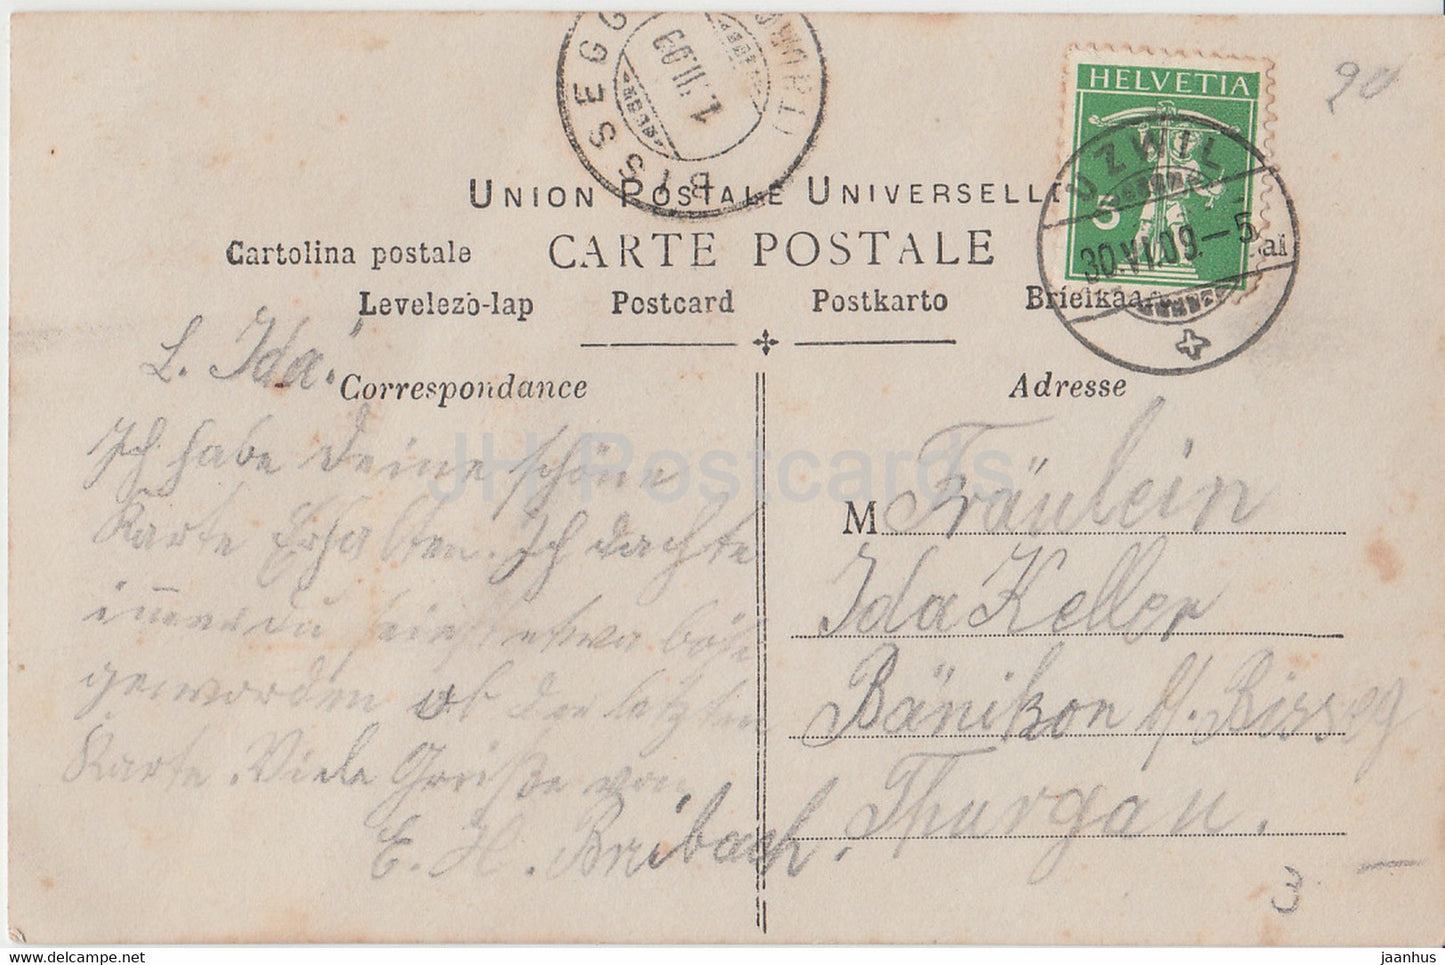 BISSEGG (THURG
1.VII.09
HELVETIA
5
UZWIL
30.VI.09.–5
20
UNION POSTALE UNIVERSELLE
Cartolina postale CARTE POSTALE
Levelezö-lap Postcard Postkarto Briefkaar
Correspondance
Adresse
L. Ida!
Ich habe deine schöne
Karte Erhalten. Ich dachte
immer du seist etwa böse
geworden ob der letzten
Karte. Viele Grüße von
E. H. Bribach.
M Fräulein
Ida Keller
Bänikon b/. Bisseg
Thurgau.
3
JH Postcards
jaanhus.com
jaanhus